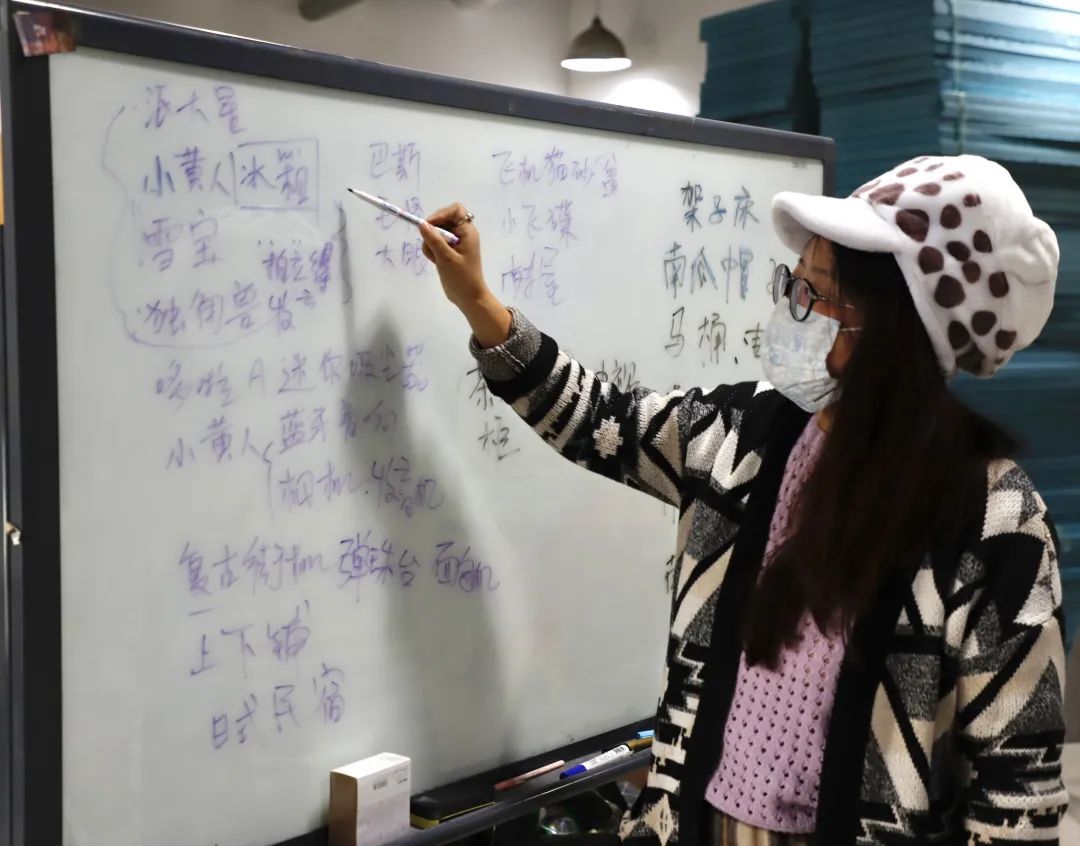 派大星
小黄人 冰箱
雪宝
独角兽 发
哆啦A 迷你吸尘器
小黄人 蓝牙音响
相机、收音机
复古街机 弹珠台 面包机
上下铺
日式民宿
巴斯
大眼
飞机猫砂盆
小飞碟
架子床
南瓜帽
马桶、
柜